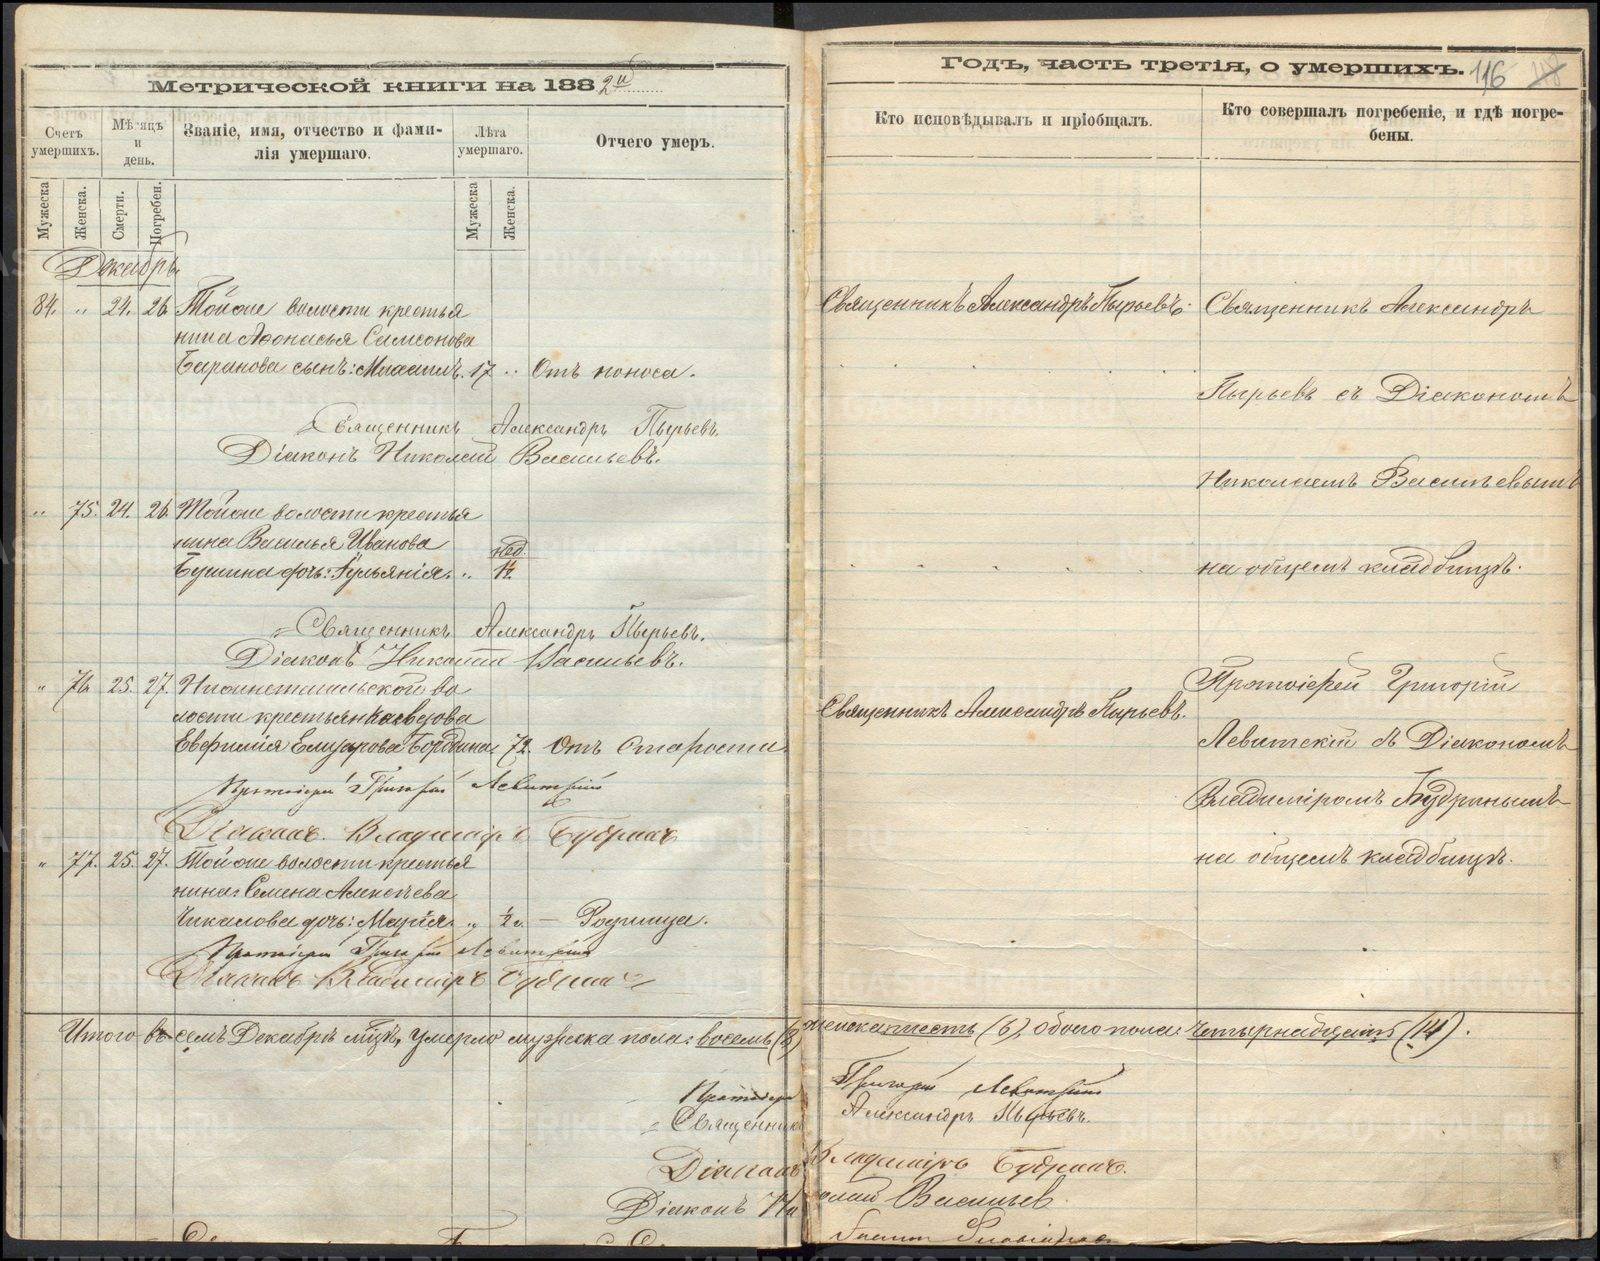 Метрической книги на 1882й
Счетъ умершихъ.
Мѣсяцъ и день.
Званіе, имя, отчество и фами-
лія умершаго.
Лѣта умершаго.
Отчего умеръ.
Мужеска
Женска.
Смерти.
Погребен.
Мужеска
Женска.
Декабрь.
84. " 24. 26. Тойже волости крестья
нина Аѳонасья Самсонова
Баранова сынъ: Михаилъ. 17 " Отъ поноса.
Священникъ Александръ Пырьевъ.
Діаконъ Николай Васильевъ.
" 75. 24. 26. Тойже волости крестья
нина Василья Иванова нед.
дочь: Іульянія. "
Священникъ Александръ Пырьевъ.
Діаконъ Николай Васильевъ.
" 76 25. 27. во
лости крестьян вдова
Евфимія Елизарова 72. Отъ старости
Протоіерей Григорій Левитскій
Діаконъ Владиміръ
" 77. 25. 27. Тойже волости крестья
нина Семена Алексѣева
Чикалова дочь: Марія. " 1/2 г. — Родимца.
Протоіерей Григорій Левитскій
Діаконъ Владиміръ
Итого въ семъ Декабрѣ мцѣ, умерло мужеска пола: восемь (8)
Протоіерей
Священникъ
Діаконъ
Діаконъ Ни
Годъ, часть третія, о умершихъ. 116
Кто исповѣдывалъ и пріобщалъ.
Кто совершалъ погребеніе, и гдѣ погре-
бены.
Священникъ Александръ Пырьевъ. Священникъ Александръ
Пырьевъ съ Діакономъ
Николаемъ Васильевымъ
на общемъ кладбищѣ.
Протоіерей Григорій
Священникъ Александръ Пырьевъ.
Левитскій съ Діакономъ
Владиміромъ
на общемъ кладбищѣ.
женска шесть (6), обоего пола: четырнадцать (14).
Григорій Левитскій
Александръ Пырьевъ.
Владиміръ
колай Васильев.